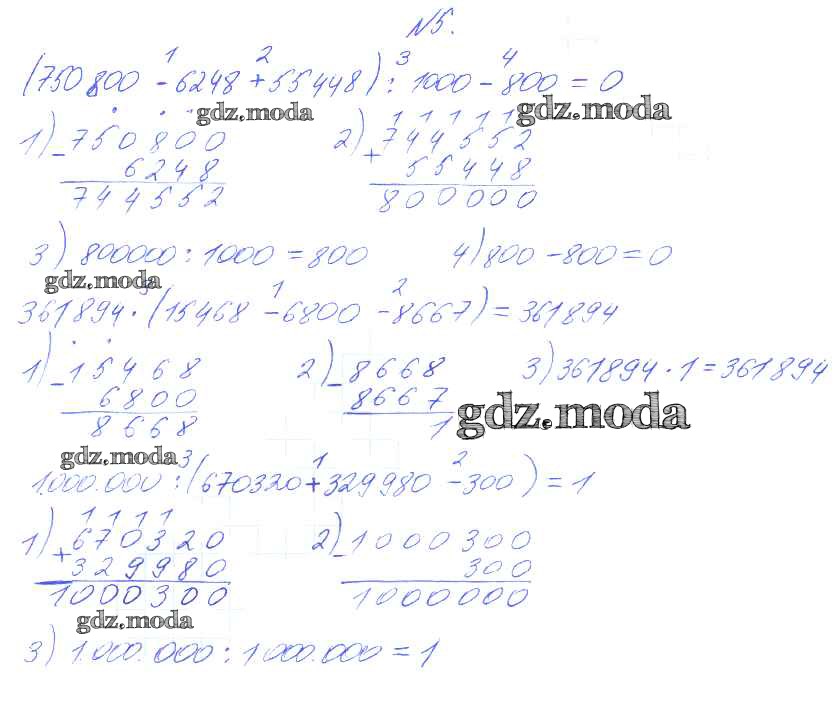 №5.
1 2 3 4
(750800 - 6248 + 55448) : 1000 - 800 = 0
gdz.moda gdz.moda
1 1 1 1 1
1) - 750800 2) + 744552
6248 55448
744552 800000
3) 800000 : 1000 = 800 4) 800 - 800 = 0
gdz.moda
3 1 2
361894 · (15468 - 6800 - 8667) = 361894
1) - 15468 2) - 8668 3) 361894 · 1 = 361894
6800 8667
8668 1
gdz.moda
gdz.moda
3 1 2
1.000.000 : (670320 + 329980 - 300) = 1
1 1 1 1
1) + 670320 2) - 1000300
329980 300
1000300 1000000
gdz.moda
3) 1.000.000 : 1000.000 = 1